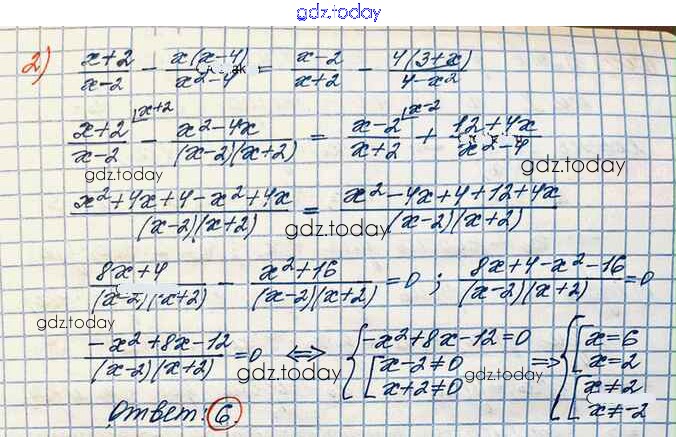 gdz.today
2) (x+2)/(x-2) - x(x-4)/(x²-4) = (x-2)/(x+2) - 4(3+x)/(4-x²)
(x+2)/(x-2) [x+2 - (x²-4x)/((x-2)(x+2)) = (x-2)/(x+2) [x-2 + (12+4x)/(x²-4)
gdz.today gdz.today
(x²+4x+4-x²+4x)/((x-2)(x+2)) = (x²-4x+4+12+4x)/((x-2)(x+2))
gdz.today
(8x+4)/((x-2)(x+2)) - (x²+16)/((x-2)(x+2)) = 0 ; (8x+4-x²-16)/((x-2)(x+2)) = 0
gdz.today
(-x²+8x-12)/((x-2)(x+2)) = 0 ⇔ { -x²+8x-12=0 [ x-2≠0 x+2≠0 ⇒ { [ x=6 x=2 [ x≠2 x≠-2
gdz.today gdz.today
Ответ: 6.